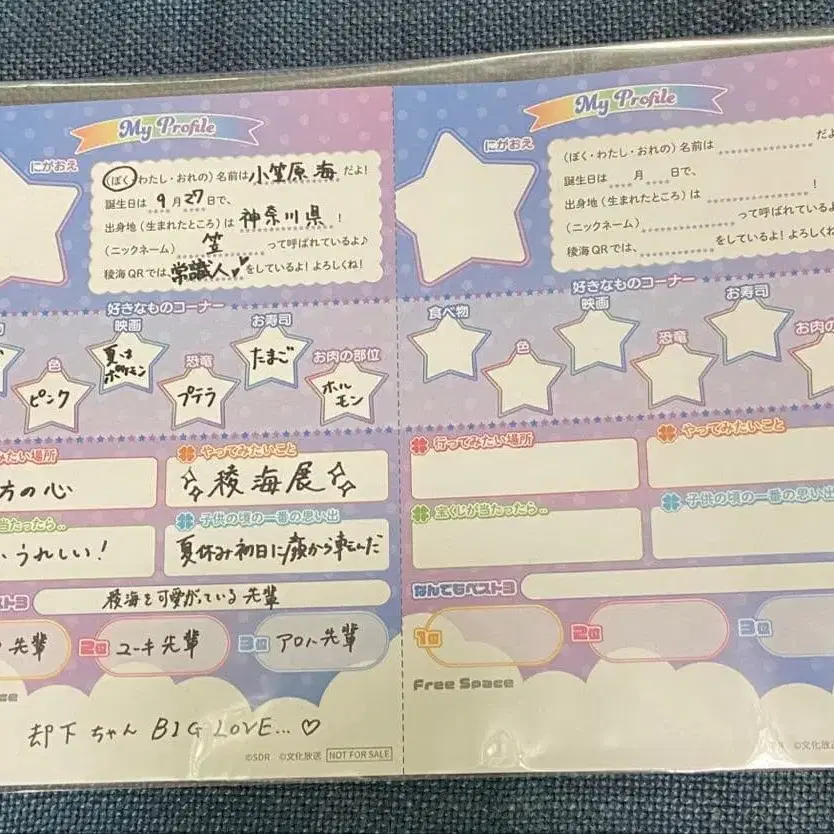 My Profile
にがおえ
(ぼく・わたし・おれの) 名前は小笠原 海だよ!
誕生日は 9 月 27 日で、
出身地 (生まれたところ) は 神奈川県 !
(ニックネーム) 笠 って呼ばれているよ♪
稜海QRでは、常識人♥をしているよ! よろしくね!
好きなものコーナー
映画
夏はポケモン
お寿司
たまご
色
ピンク
恐竜
プテラ
お肉の部位
ホルモン
みたい場所
方の心
やってみたいこと
稜海展
当たったら..
うれしい!
子供の頃の一番の思い出
夏休み初日に顔から転んだ
スト3
稜海を可愛がっている先輩
先輩
2位 ユーキ先輩
3位 アロハ先輩
却下ちゃん BIG LOVE...♡
©SDR ©文化放送 NOT FOR SALE
My Profile
にがおえ
(ぼく・わたし・おれの) 名前は だよ
誕生日は 月 日で、
出身地 (生まれたところ) は !
(ニックネーム) って呼ばれているよ
稜海QRでは、 をしているよ! よろしくね
好きなものコーナー
食べ物
映画
お寿司
色
恐竜
お肉の
行ってみたい場所
やってみたいこと
宝くじが当たったら..
子供の頃の一番の思い出
なんでもベスト3
1位
2位
3位
Free Space
©文化放送